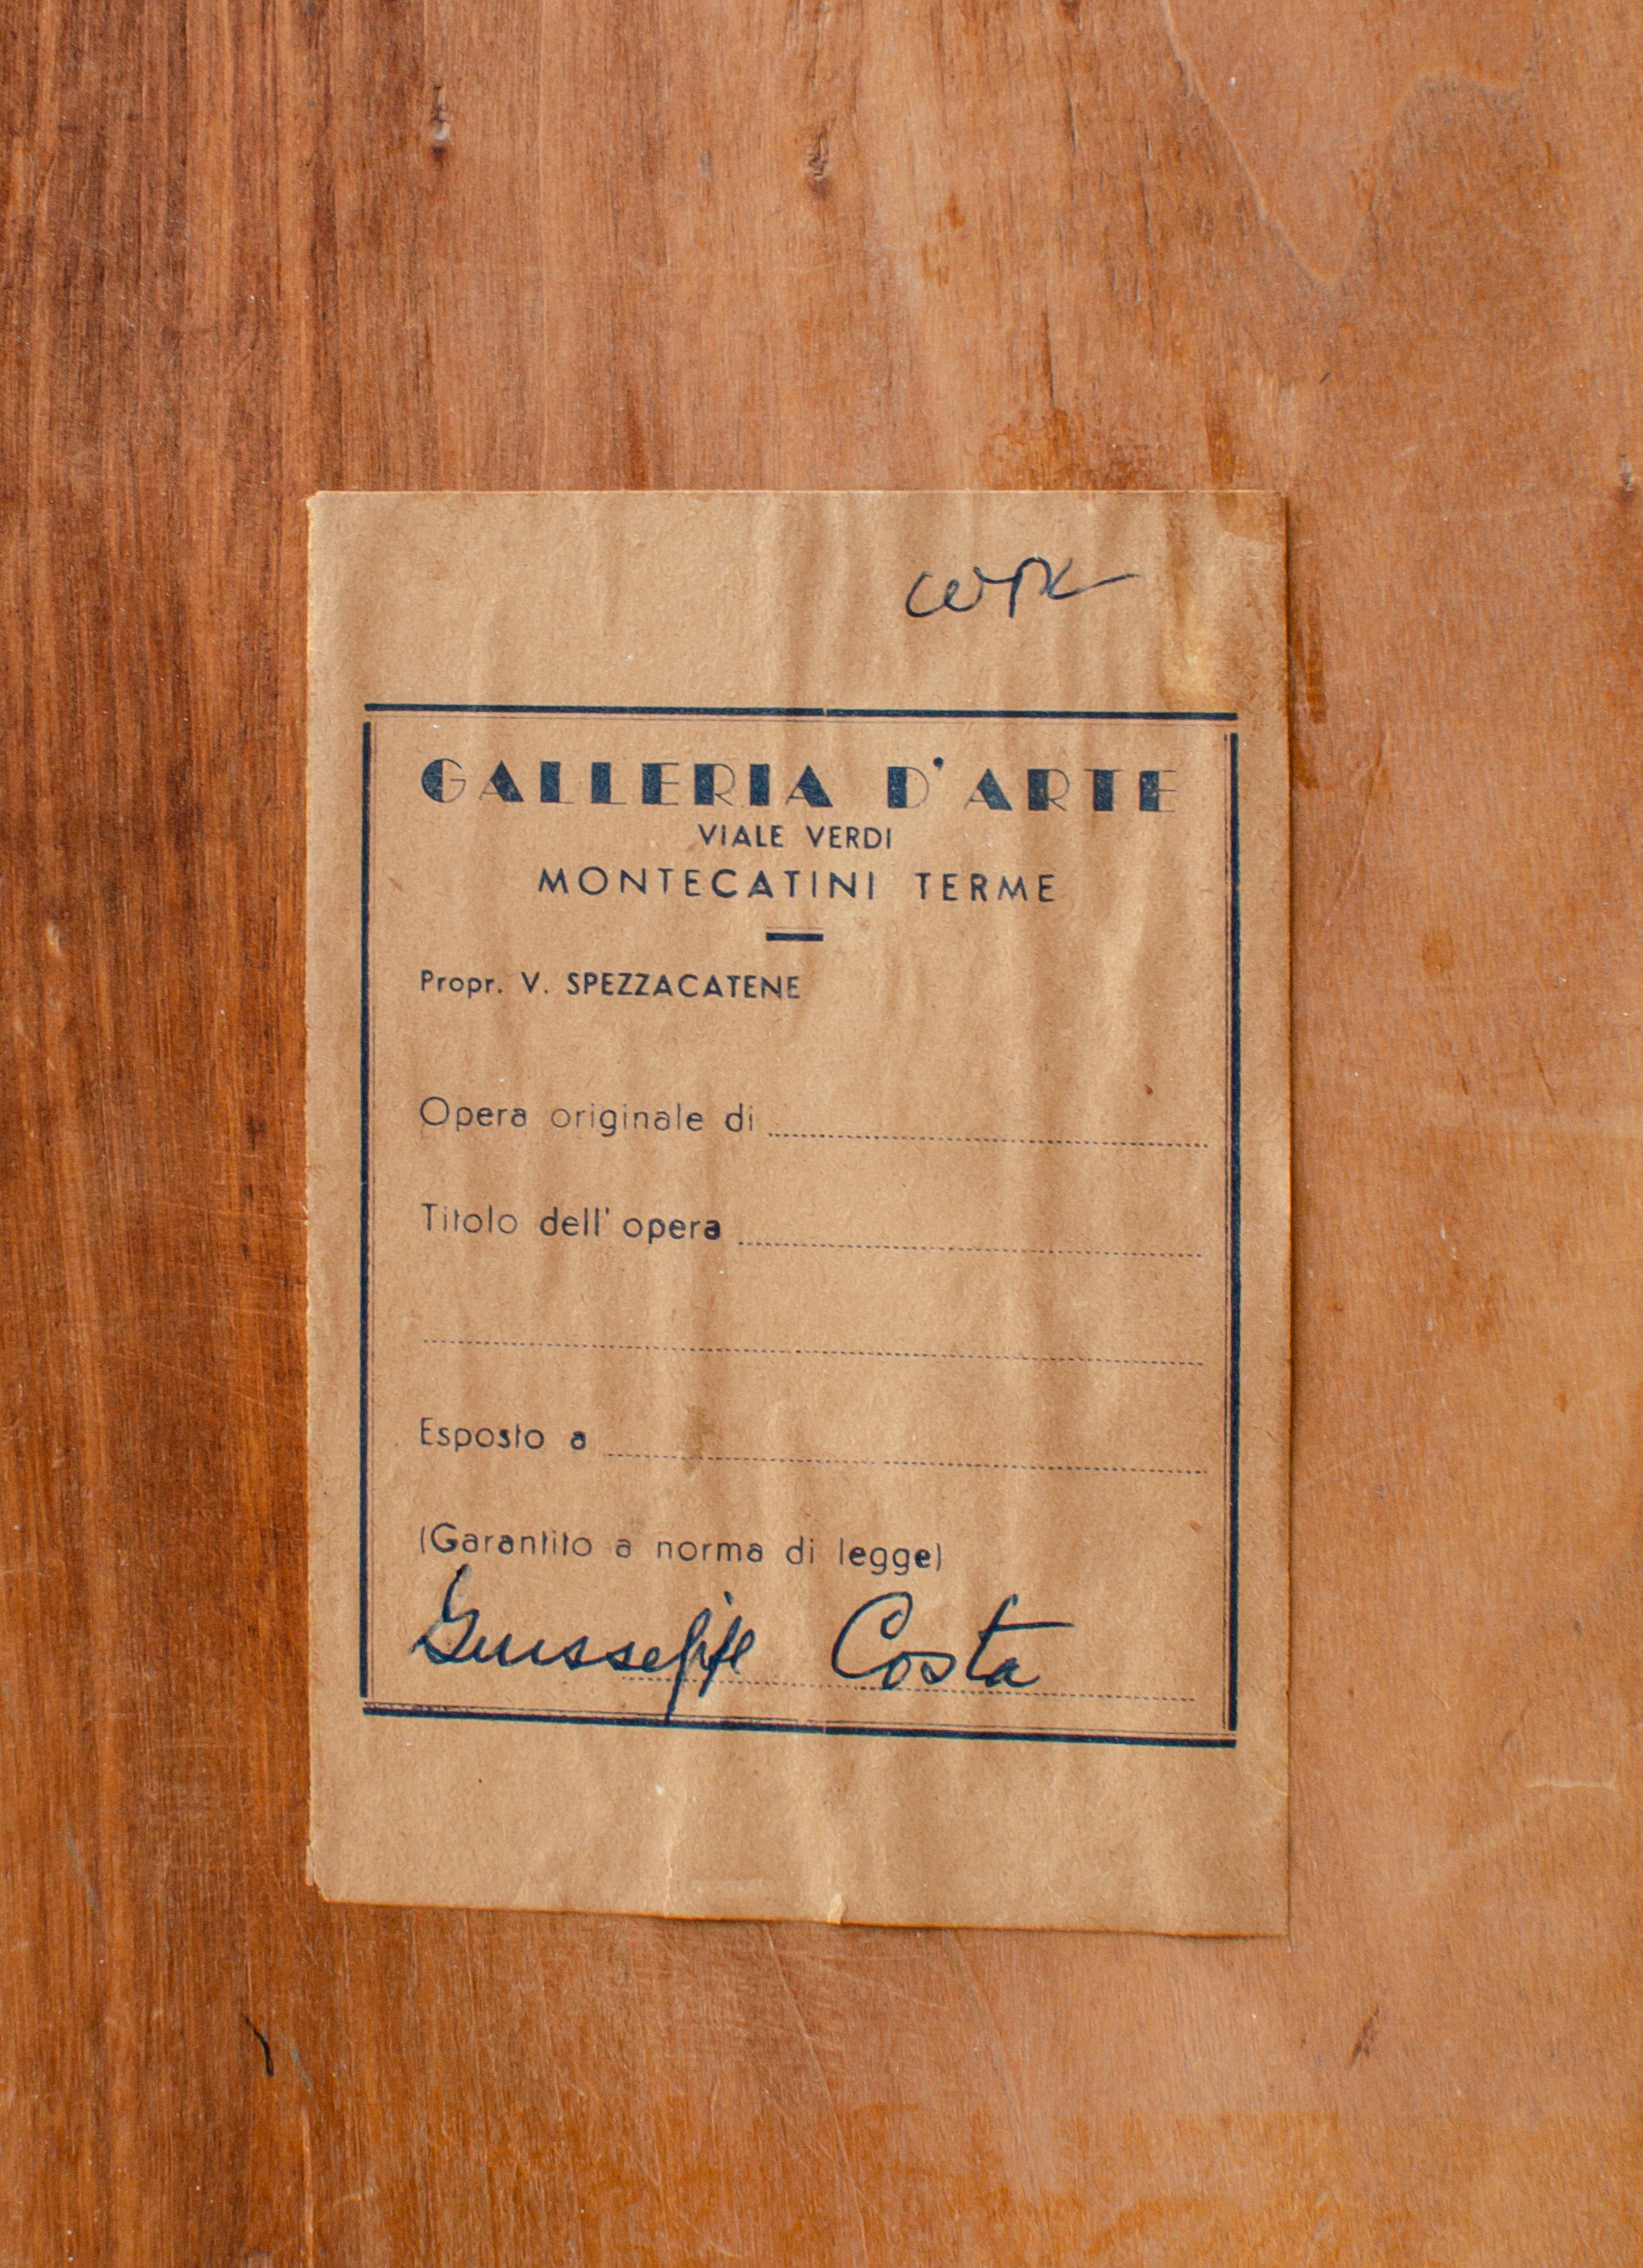 GALLERIA D'ARTE
VIALE VERDI
MONTECATINI TERME
Propr. V. SPEZZACATENE
Opera originale di
Titolo dell' opera
Esposto a
(Garantito a norma di legge)
Giuseppe Costa